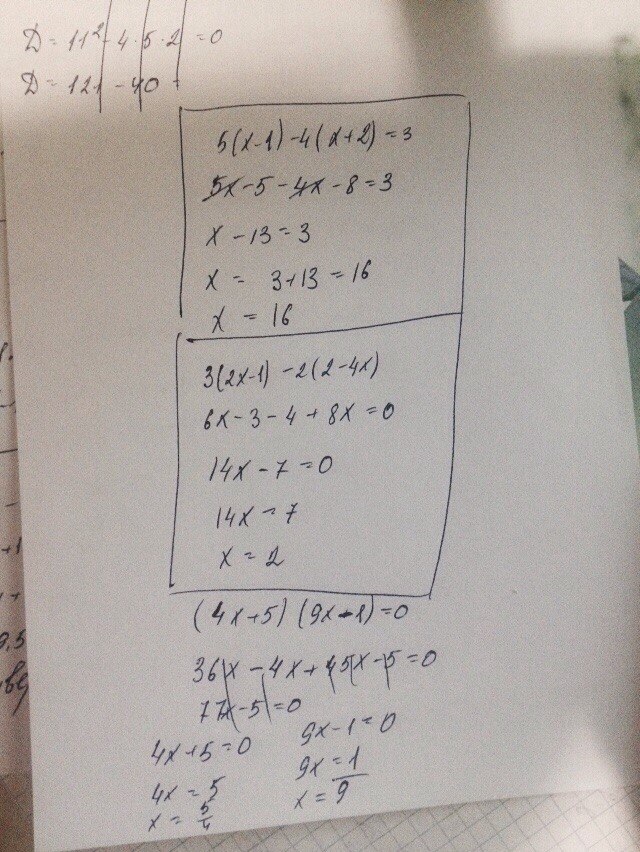 D = 11² - 4·5·2 = 0
D = 121 - 40 =
5(x-1) - 4(x+2) = 3
5x - 5 - 4x - 8 = 3
x - 13 = 3
x = 3+13 = 16
x = 16
3(2x-1) - 2(2-4x)
6x - 3 - 4 + 8x = 0
14x - 7 = 0
14x = 7
x = 2
(4x+5) (9x-1) = 0
36x - 4x + 45x - 5 = 0
77x - 5 = 0
4x+5 = 0
4x = 5
x = 5/4
9x-1 = 0
9x = 1
x = 9